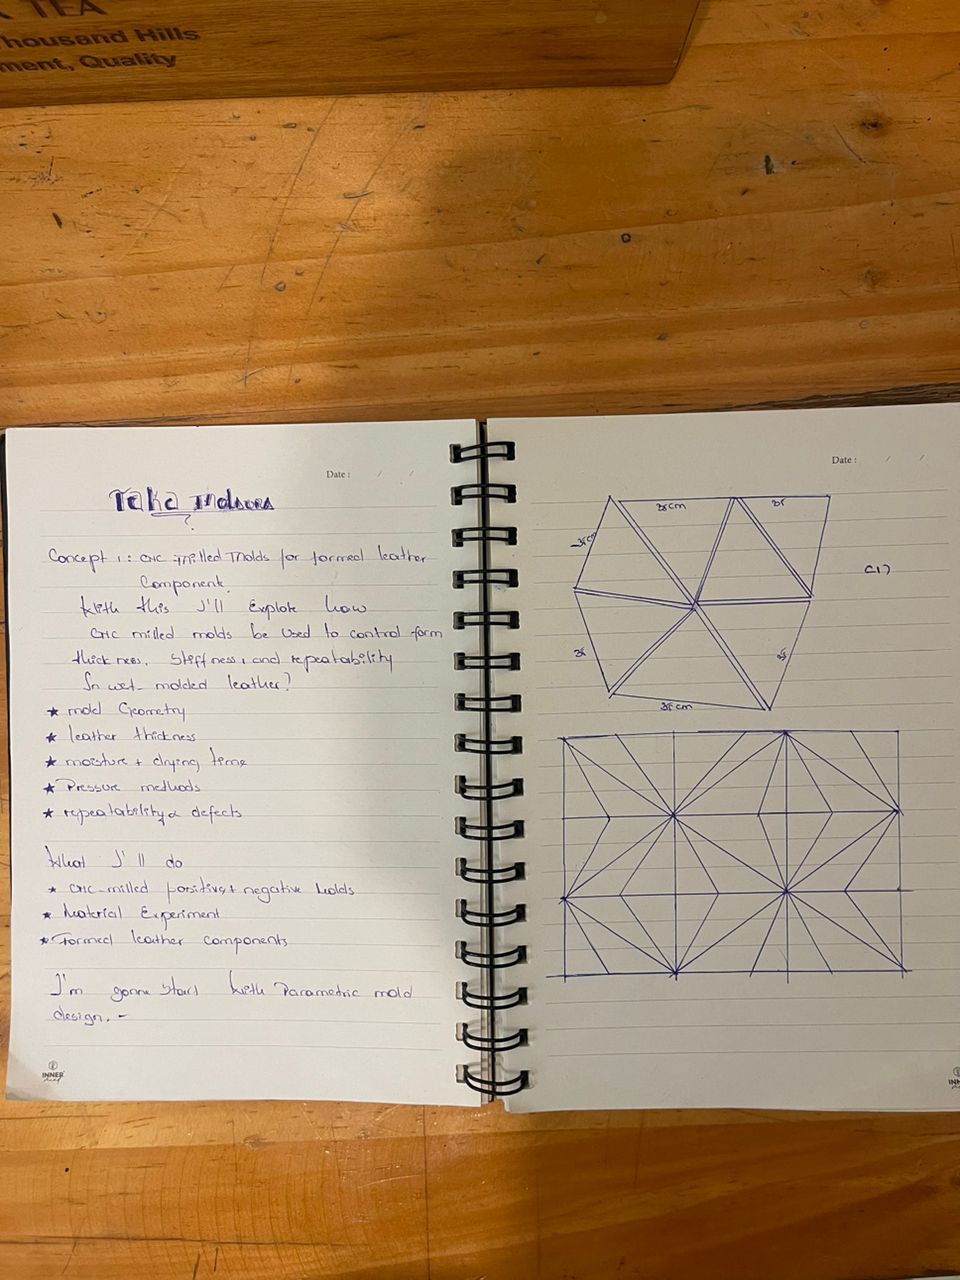 TEA
Thousand Hills
ment, Quality
Date : / /
Taka
?
Concept 1: CNC milled Molds for formed leather
Component.
With this I'll Explore how
CNC milled molds be used to control form
thickness, stiffness, and repeatability
In wet-molded leather?
★ mold Geometry
★ leather thickness
★ moisture + drying time
★ Pressure methods
★ repeatability & defects
What I'll do
★ CNC-milled positive + negative molds
★ Material Experiment
★ Formed leather components
I'm gonna start with Parametric mold
design. -
INNER
Date : / /
cm
cm
cm